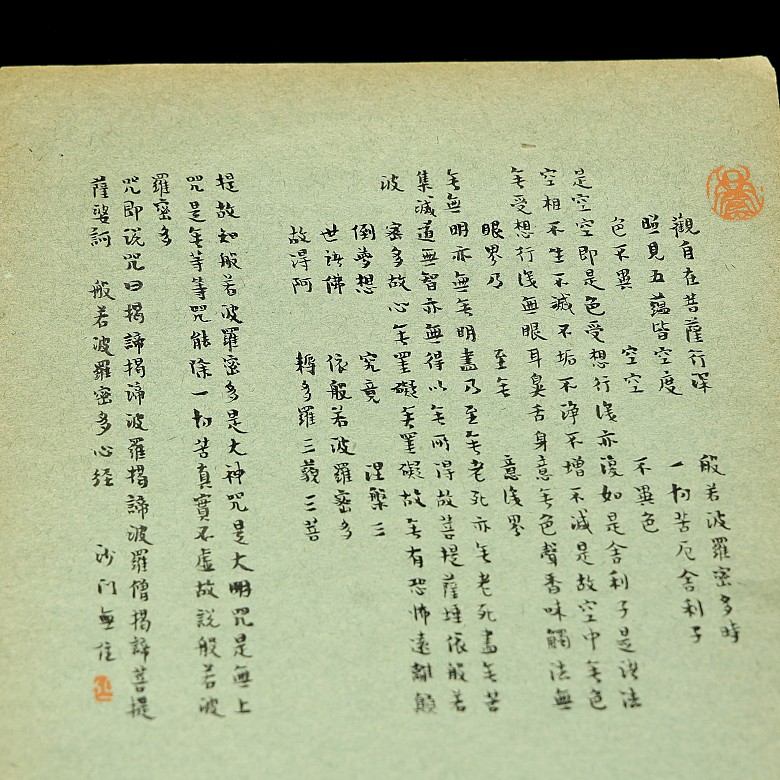 觀自在菩薩行深 般若波羅密多時
照見五蘊皆空度 一切苦厄舍利子
色不異 空空 不異色
是空空即是色受想行識亦復如是舍利子是諸法
空相不生不滅不垢不淨不增不減是故空中無色
無受想行識無眼耳鼻舌身意無色聲香味觸法無
眼界乃 至無 意識界
無無明亦無無明盡乃至無老死亦無老死盡無苦
集滅道無智亦無得以無所得故菩提薩埵依般若
波 密多故心無罣礙無罣礙故無有恐怖遠離顛
倒夢想 究竟 涅槃三
世諸佛 依般若波羅密多
故得阿 耨多羅三藐三菩
提故知般若波羅密多是大神咒是大明咒是無上
咒是無等等咒能除一切苦真實不虛故說般若波
羅密多
咒即說咒曰揭諦揭諦波羅揭諦波羅僧揭諦菩提
薩婆訶 般若波羅密多心經 沙門無住